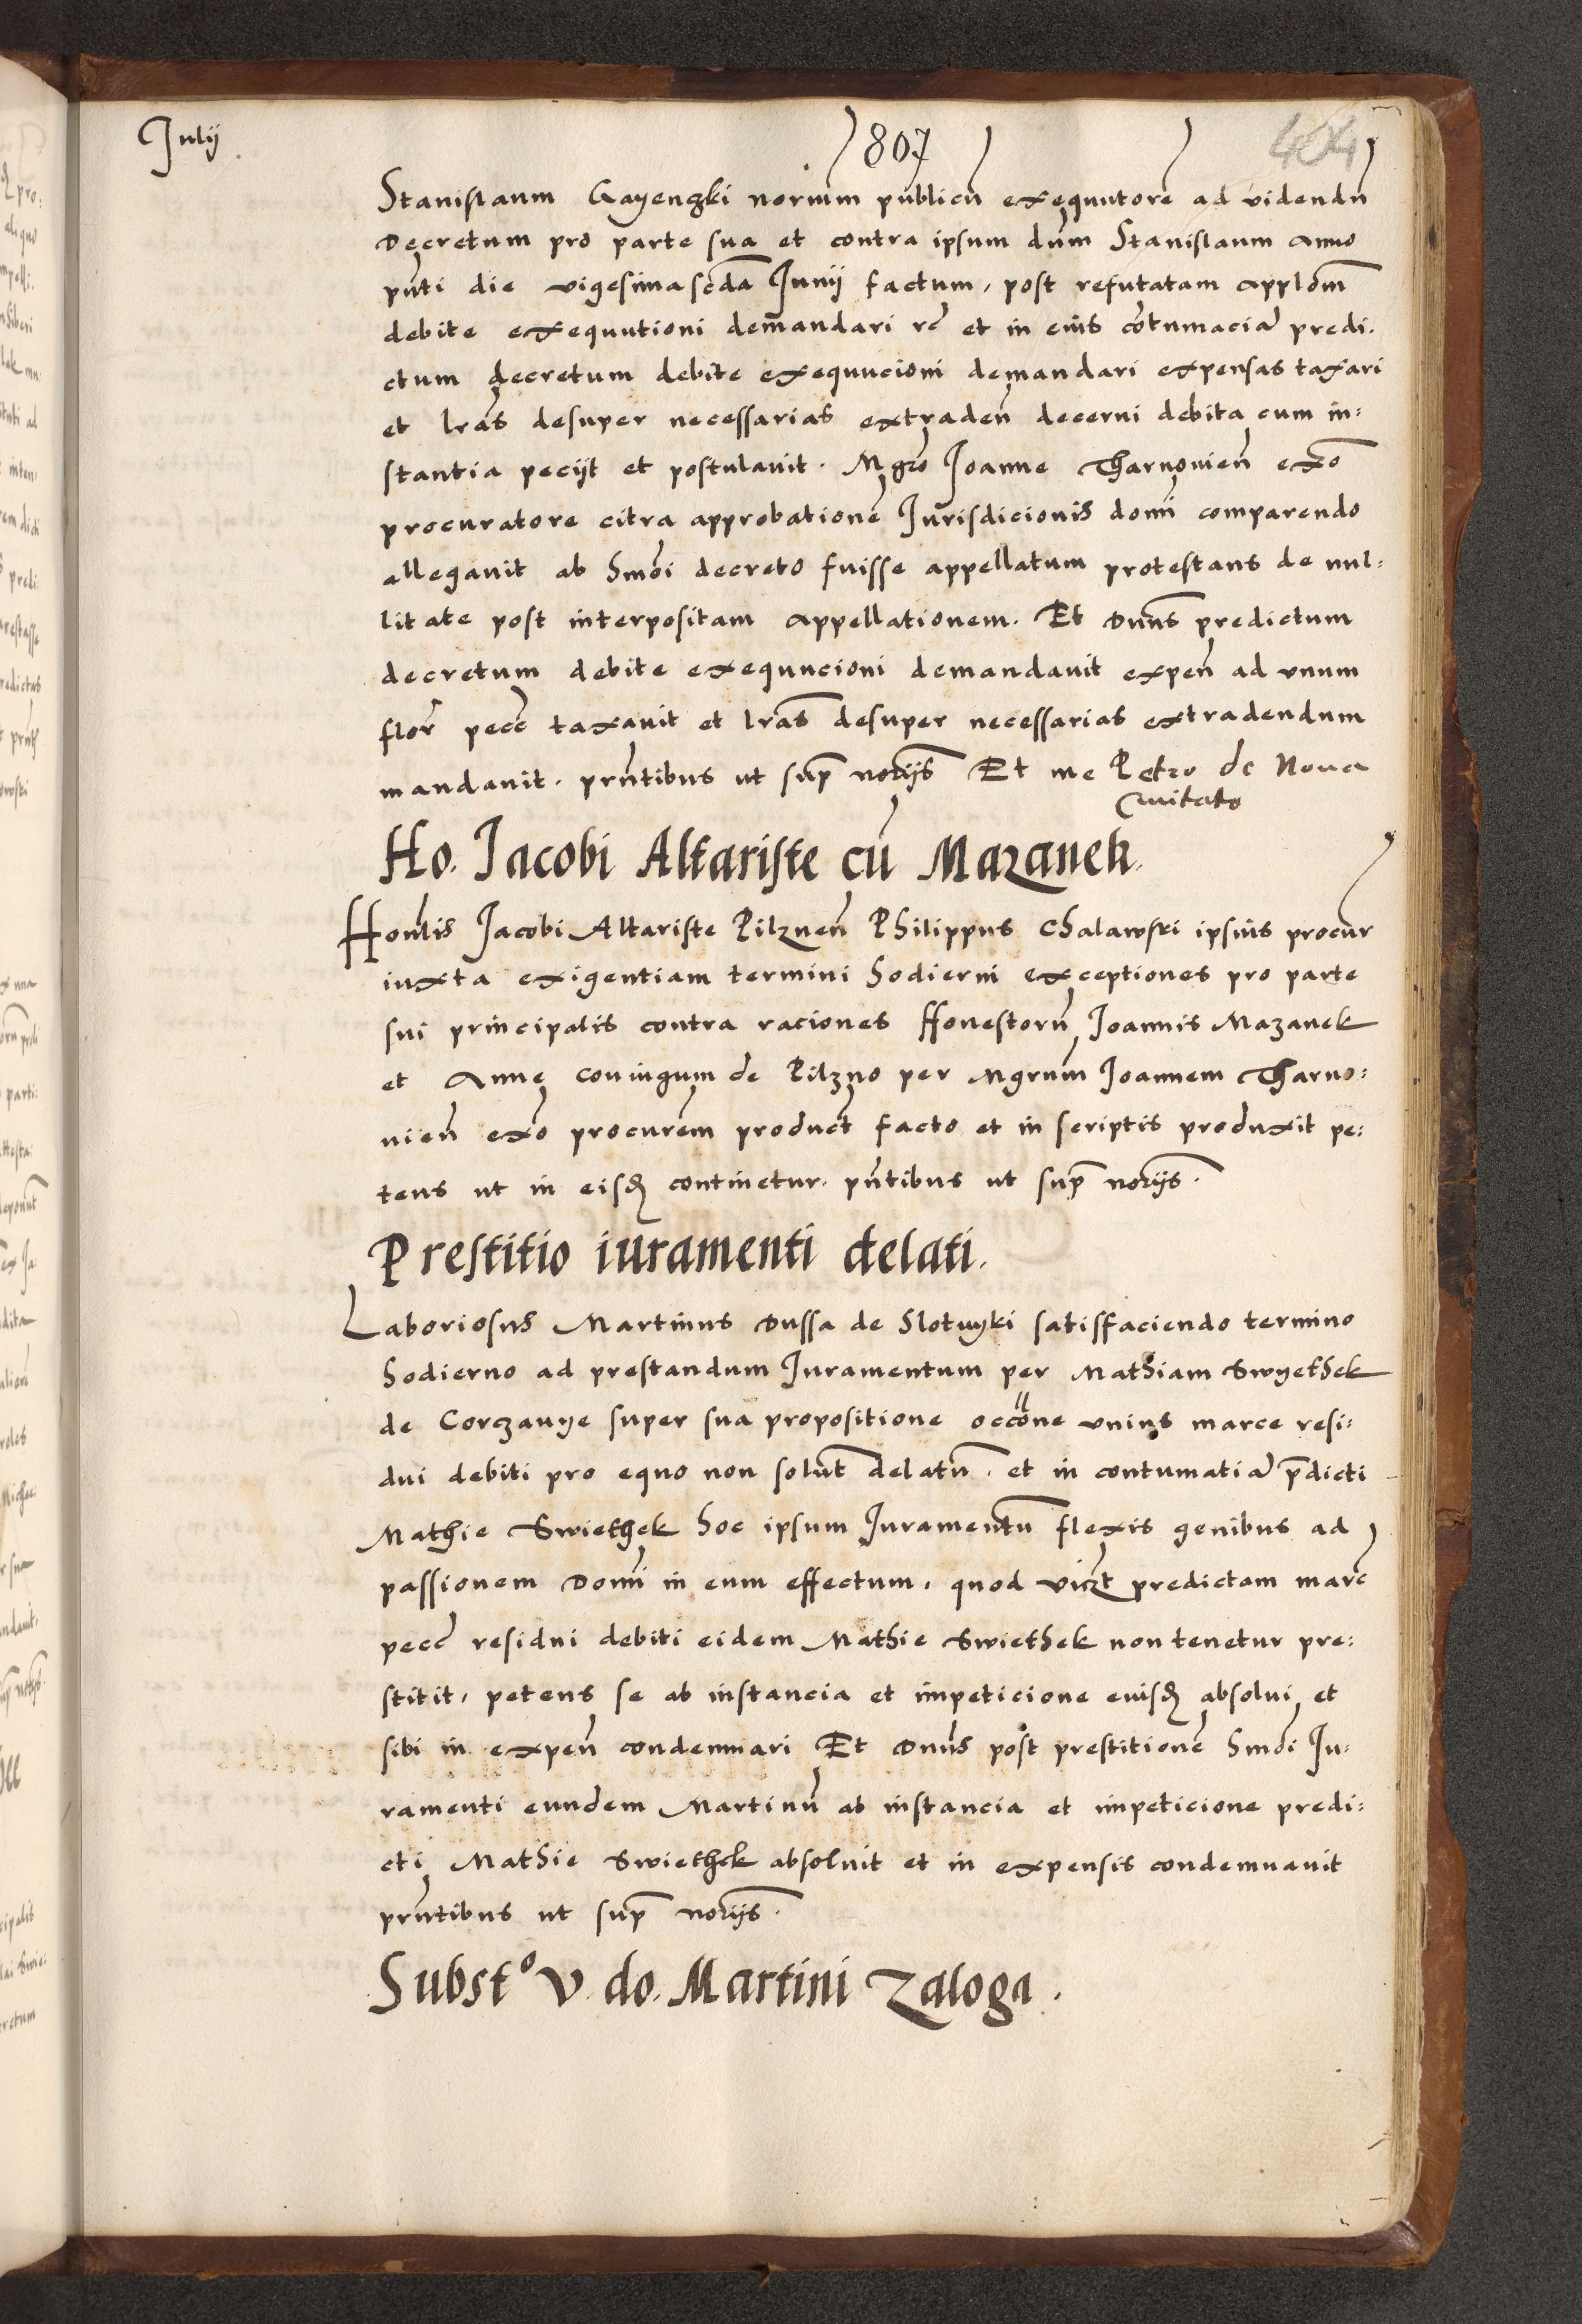 Julij
807
404
Stanislaum Gayenczki norium publicũ exequutorẽ ad videndũ
Decretum pro parte sua et contra ipsum dũm Stanislaum anno
pñti die vigesima scđa Junij factum, post refutatam applõm
debite exequutioni demandari rc̃ et in eius cõtumaciã predi,
ctum decretum debite exequucioni demandari expensas taxari
et lrãs desuper necessarias extradeñ decerni debita cum in:
stantia pecijt et postulavit. Mgrõ Joanne Tharnovieñ exõ
procuratore citra approbationẽ Jurisdicionis domĩ comparendo
allegavit ab hmõi decreto fuisse appellatum protestans de nul:
litate post interpositam appellationem. Et Dnũs predictum
decretum debite exequucioni demandavit expeñ ad vnum
flor̃ pecc̃ taxavit et lrãs desuper necessarias extradendum
mandavit. prñtibus ut sup̃ norijs Et me Petro de Nova
Civitate
Ho. Jacobi Altariste cũ Mazanek.
Honl̃is Jacobi Altariste Pilzneñ Philippus Chalawski ipsius procur̃
iuxta exigentiam termini hodierni exceptiones pro parte
sui principalis contra raciones Honestorũ Joannis Mazanek
et Anne coniugum de Pilzno per Mgrũm Joannem Tharno:
vieñ exõ procurẽm product̃ facto et in scriptis produxit pe:
tens ut in eisđ continetur. pñtibus ut sup̃ norijs.
Prestitio iuramenti delati.
Laboriosus Martinus Dussa de Slotwyki satisfaciendo termino
hodierno ad prestandum Juramentum per Mathiam Swyethek
de Corczauye super sua propositione occõne vnius marce resi:
dui debiti pro equo non solut̃ delatũ. et in contumatiã p̃dicti
Mathie Swiethek hoc ipsum Juramentũ flexis genibus ad
passionem Domĩ in eum effectum, quod vicz̃t predictam marc̃
pecc̃ residui debiti eidem Mathie Swiethek non tenetur pre:
stitit, petens se ab instancia et impeticione euisđ absolvi et
sibi in expeñ condemnari Et Dnũs post prestitionẽ hmõi Ju:
ramenti eundem Martinũ ab instancia et impeticione predi:
cti Mathie Swiethek absolvit et in expensis condemnavit
prñtibus ut sup̃ norijs.
Substº V. do. Martini Zaloga.